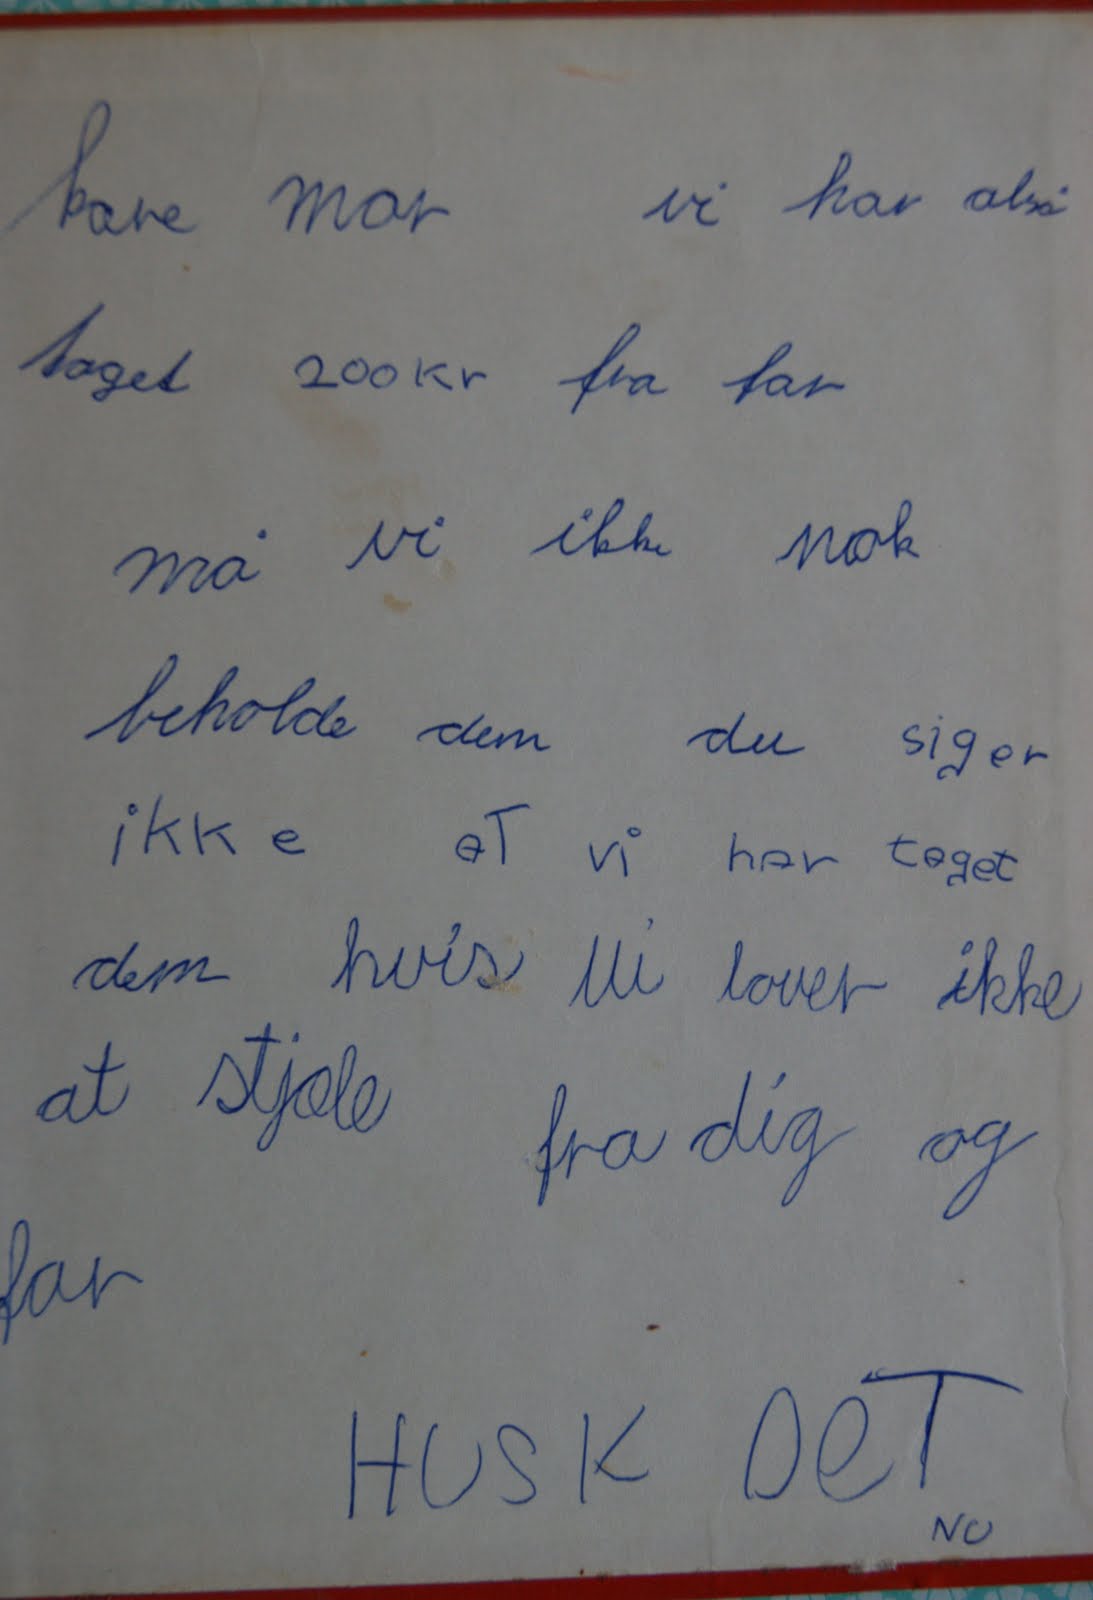 kære mor vi har altså
taget 200 kr fra far
må vi ikke nok
beholde dem du siger
ikke at vi har taget
dem hvis vi lover ikke
at stjæle fra dig og
far
HUSK DET
NU